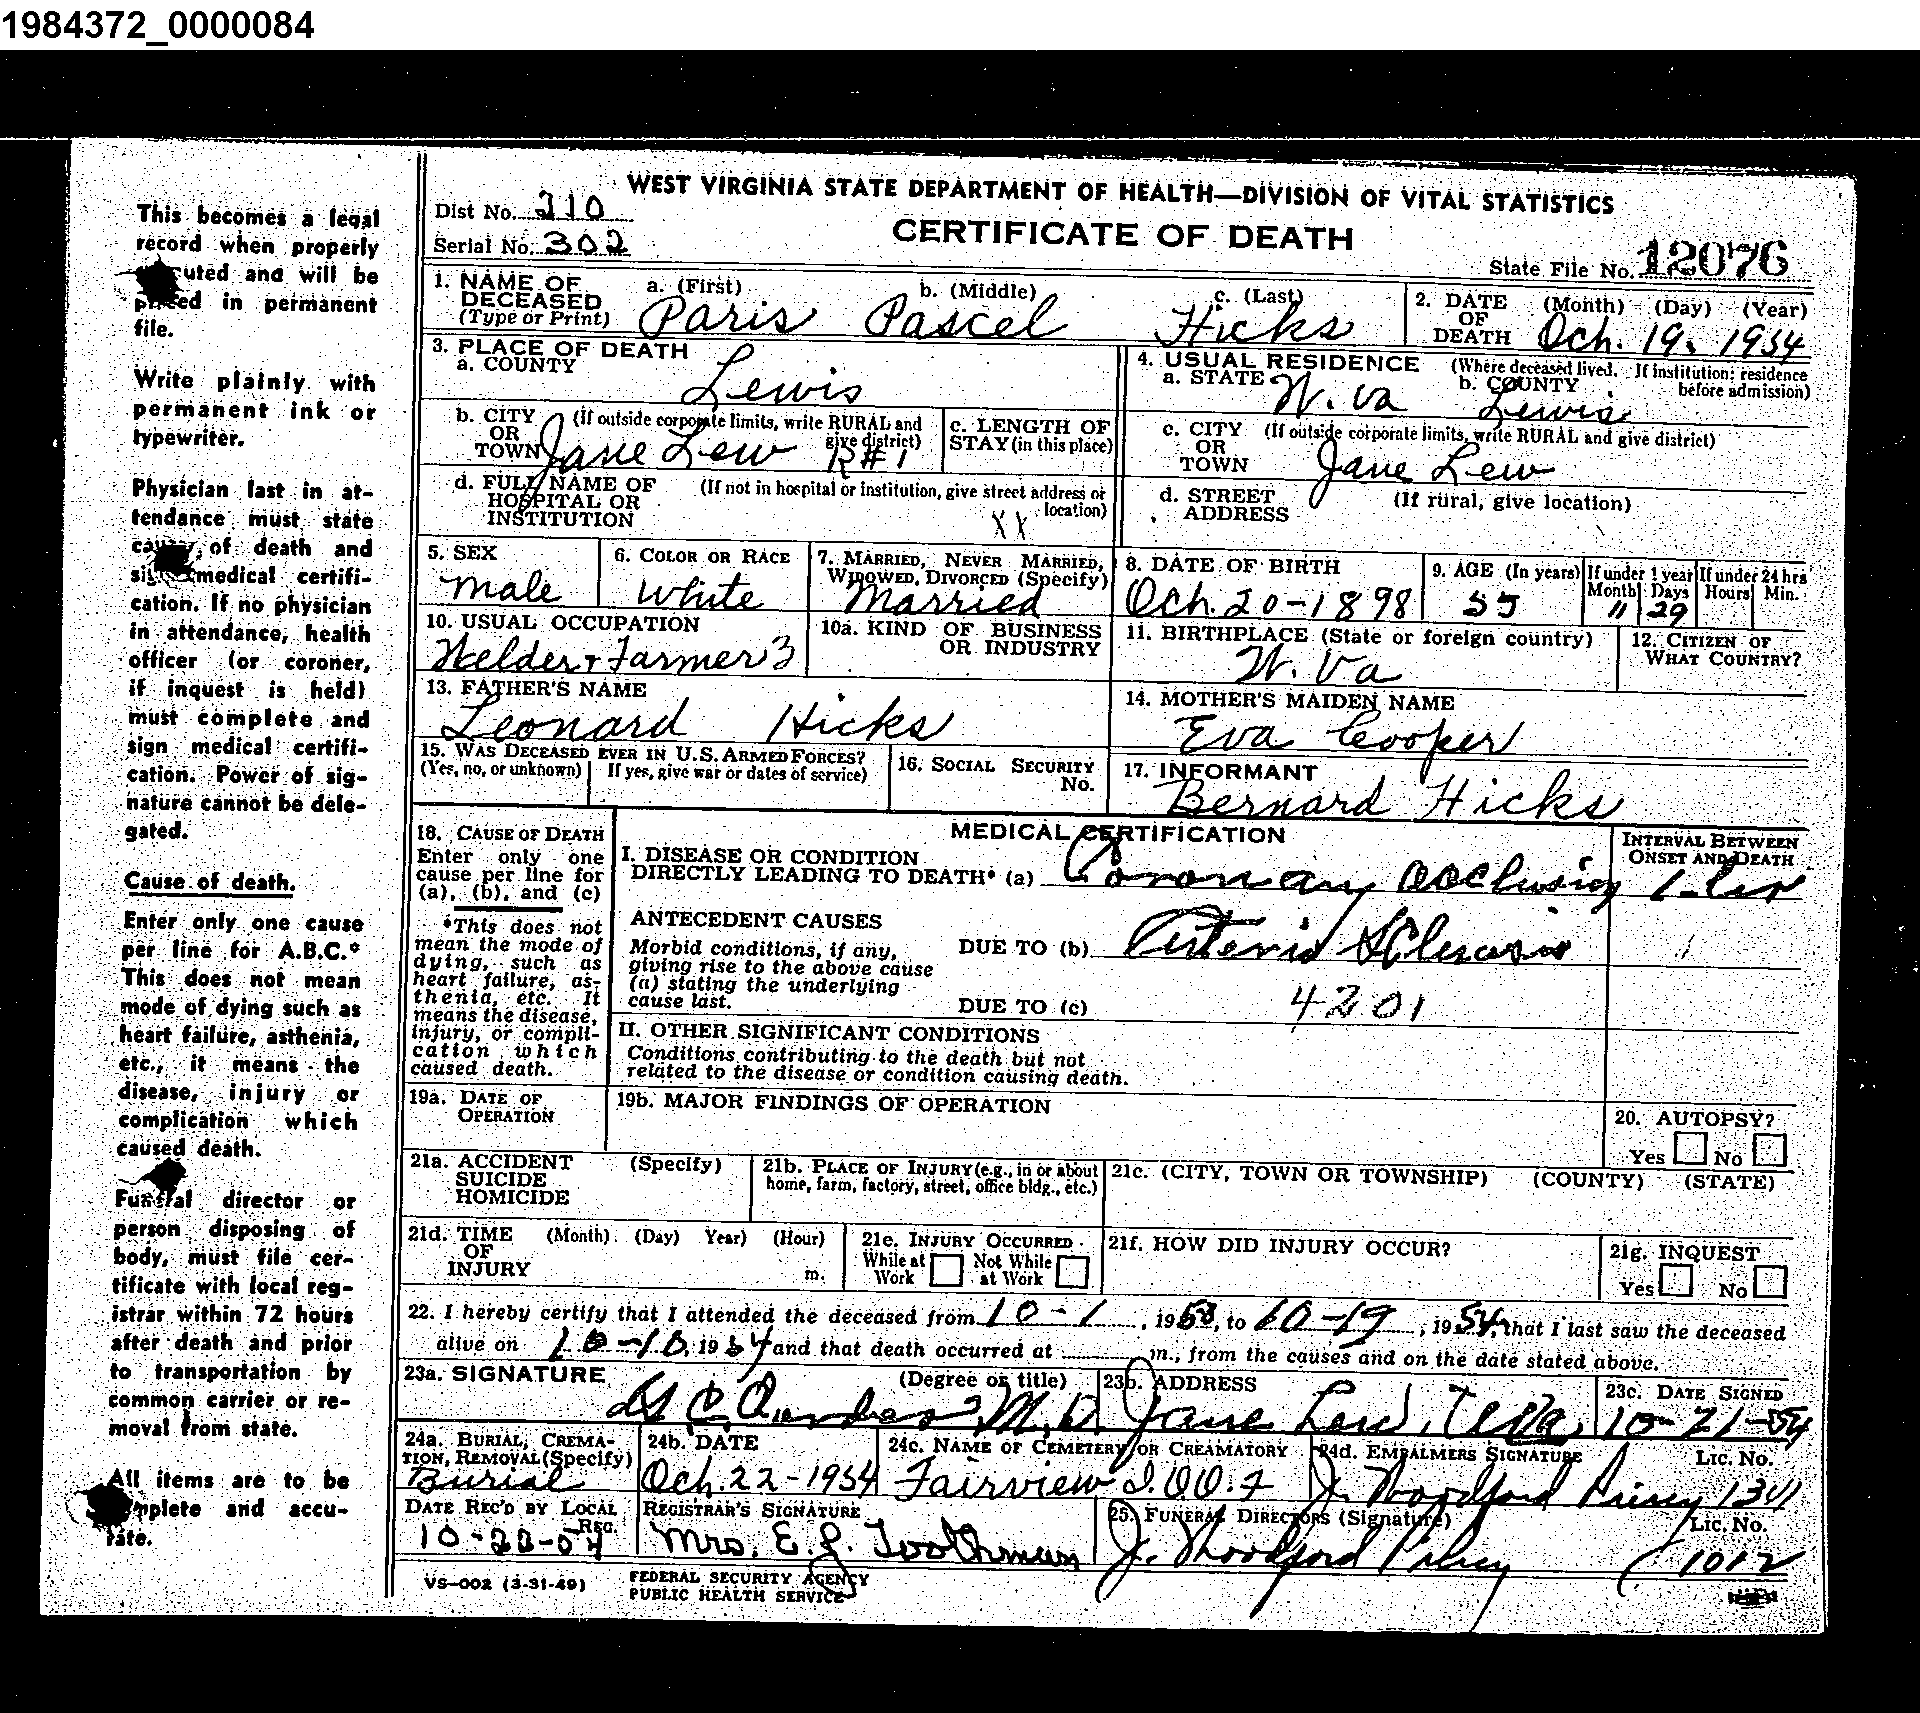 1984372_0000084
This becomes a legal
record when properly
uted and will be
placed in permanent
file.
Write plainly with
permanent ink or
typewriter.
Physician last in at-
tendance must state
cause of death and
sign medical certifi-
cation. If no physician
in attendance, health
officer (or coroner,
if inquest is held)
must complete and
sign medical certifi-
cation. Power of sig-
nature cannot be dele-
gated.
Cause of death.
Enter only one cause
per line for A.B.C.*
This does not mean
mode of dying such as
heart failure, asthenia,
etc., it means the
disease, injury or
complication which
caused death.
Funeral director or
person disposing of
body, must file cer-
tificate with local reg-
istrar within 72 hours
after death and prior
to transportation by
common carrier or re-
moval from state.
All items are to be
mplete and accu-
rate.
WEST VIRGINIA STATE DEPARTMENT OF HEALTH—DIVISION OF VITAL STATISTICS
Dist No. 210
CERTIFICATE OF DEATH
Serial No. 302
State File No. 12076
1. NAME OF DECEASED (Type or Print) a. (First) Paris b. (Middle) Pascel c. (Last) Hicks
2. DATE OF DEATH (Month) (Day) (Year) Oct. 19. 1954
3. PLACE OF DEATH
a. COUNTY Lewis
4. USUAL RESIDENCE (Where deceased lived. If institution: residence before admission)
a. STATE W. Va b. COUNTY Lewis
b. CITY OR TOWN (If outside corporate limits, write RURAL and give district) Jane Lew R#1
c. LENGTH OF STAY (in this place)
c. CITY OR TOWN (If outside corporate limits, write RURAL and give district) Jane Lew
d. FULL NAME OF HOSPITAL OR INSTITUTION (If not in hospital or institution, give street address or location) XX
d. STREET ADDRESS (If rural, give location)
5. SEX male
6. COLOR OR RACE white
7. MARRIED, NEVER MARRIED, WIDOWED, DIVORCED (Specify) Married
8. DATE OF BIRTH Oct. 20-1898
9. AGE (In years) 55 If under 1 year Month 11 Days 29 If under 24 hrs Hours Min.
10. USUAL OCCUPATION Welder + Farmer 3
10a. KIND OF BUSINESS OR INDUSTRY
11. BIRTHPLACE (State or foreign country) W. Va
12. CITIZEN OF WHAT COUNTRY?
13. FATHER'S NAME Leonard Hicks
14. MOTHER'S MAIDEN NAME Eva Cooper
15. WAS DECEASED EVER IN U.S. ARMED FORCES? (Yes, no, or unknown) If yes, give war or dates of service)
16. SOCIAL SECURITY No.
17. INFORMANT Bernard Hicks
18. CAUSE OF DEATH
Enter only one cause per line for (a), (b), and (c)
*This does not mean the mode of dying, such as heart failure, asthenia, etc. It means the disease, injury, or complication which caused death.
MEDICAL CERTIFICATION
INTERVAL BETWEEN ONSET AND DEATH
I. DISEASE OR CONDITION
DIRECTLY LEADING TO DEATH* (a) Coronary occlusion
ANTECEDENT CAUSES
Morbid conditions, if any, giving rise to the above cause (a) stating the underlying cause last.
DUE TO (b) Arterio Sclerosis
DUE TO (c) 4201
II. OTHER SIGNIFICANT CONDITIONS
Conditions contributing to the death but not
related to the disease or condition causing death.
19a. DATE OF OPERATION
19b. MAJOR FINDINGS OF OPERATION
20. AUTOPSY?
Yes No
21a. ACCIDENT SUICIDE HOMICIDE (Specify)
21b. PLACE OF INJURY (e.g., in or about home, farm, factory, street, office bldg., etc.)
21c. (CITY, TOWN OR TOWNSHIP) (COUNTY) (STATE)
21d. TIME OF INJURY (Month) (Day) Year) (Hour) m.
21e. INJURY OCCURRED
While at Work Not While at Work
21f. HOW DID INJURY OCCUR?
21g. INQUEST
Yes No
22. I hereby certify that I attended the deceased from 10-1, 1953, to 10-19, 1954, that I last saw the deceased
alive on 10-10, 1954 and that death occurred at m., from the causes and on the date stated above.
23a. SIGNATURE (Degree or title) M.D.
23b. ADDRESS Jane Lew, W Va.
23c. DATE SIGNED 10-21-54
24a. BURIAL, CREMATION, REMOVAL (Specify) Burial
24b. DATE Oct. 22-1954
24c. NAME OF CEMETERY OR CREAMATORY Fairview I.O.O.F
24d. EMBALMERS SIGNATURE J. Woodford LIC. NO.
DATE REC'D BY LOCAL REG. 10-22-54
REGISTRAR'S SIGNATURE Mrs. E. J. Toothman
25. FUNERAL DIRECTORS (Signature) J. Woodford LIC. NO. 1012
VS-002 (3-31-49)
FEDERAL SECURITY AGENCY
PUBLIC HEALTH SERVICE